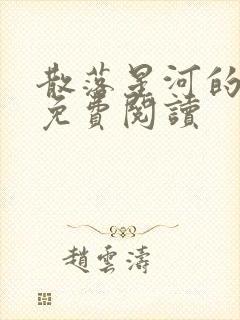 散落星河的
免費閱讀
趙雲濤